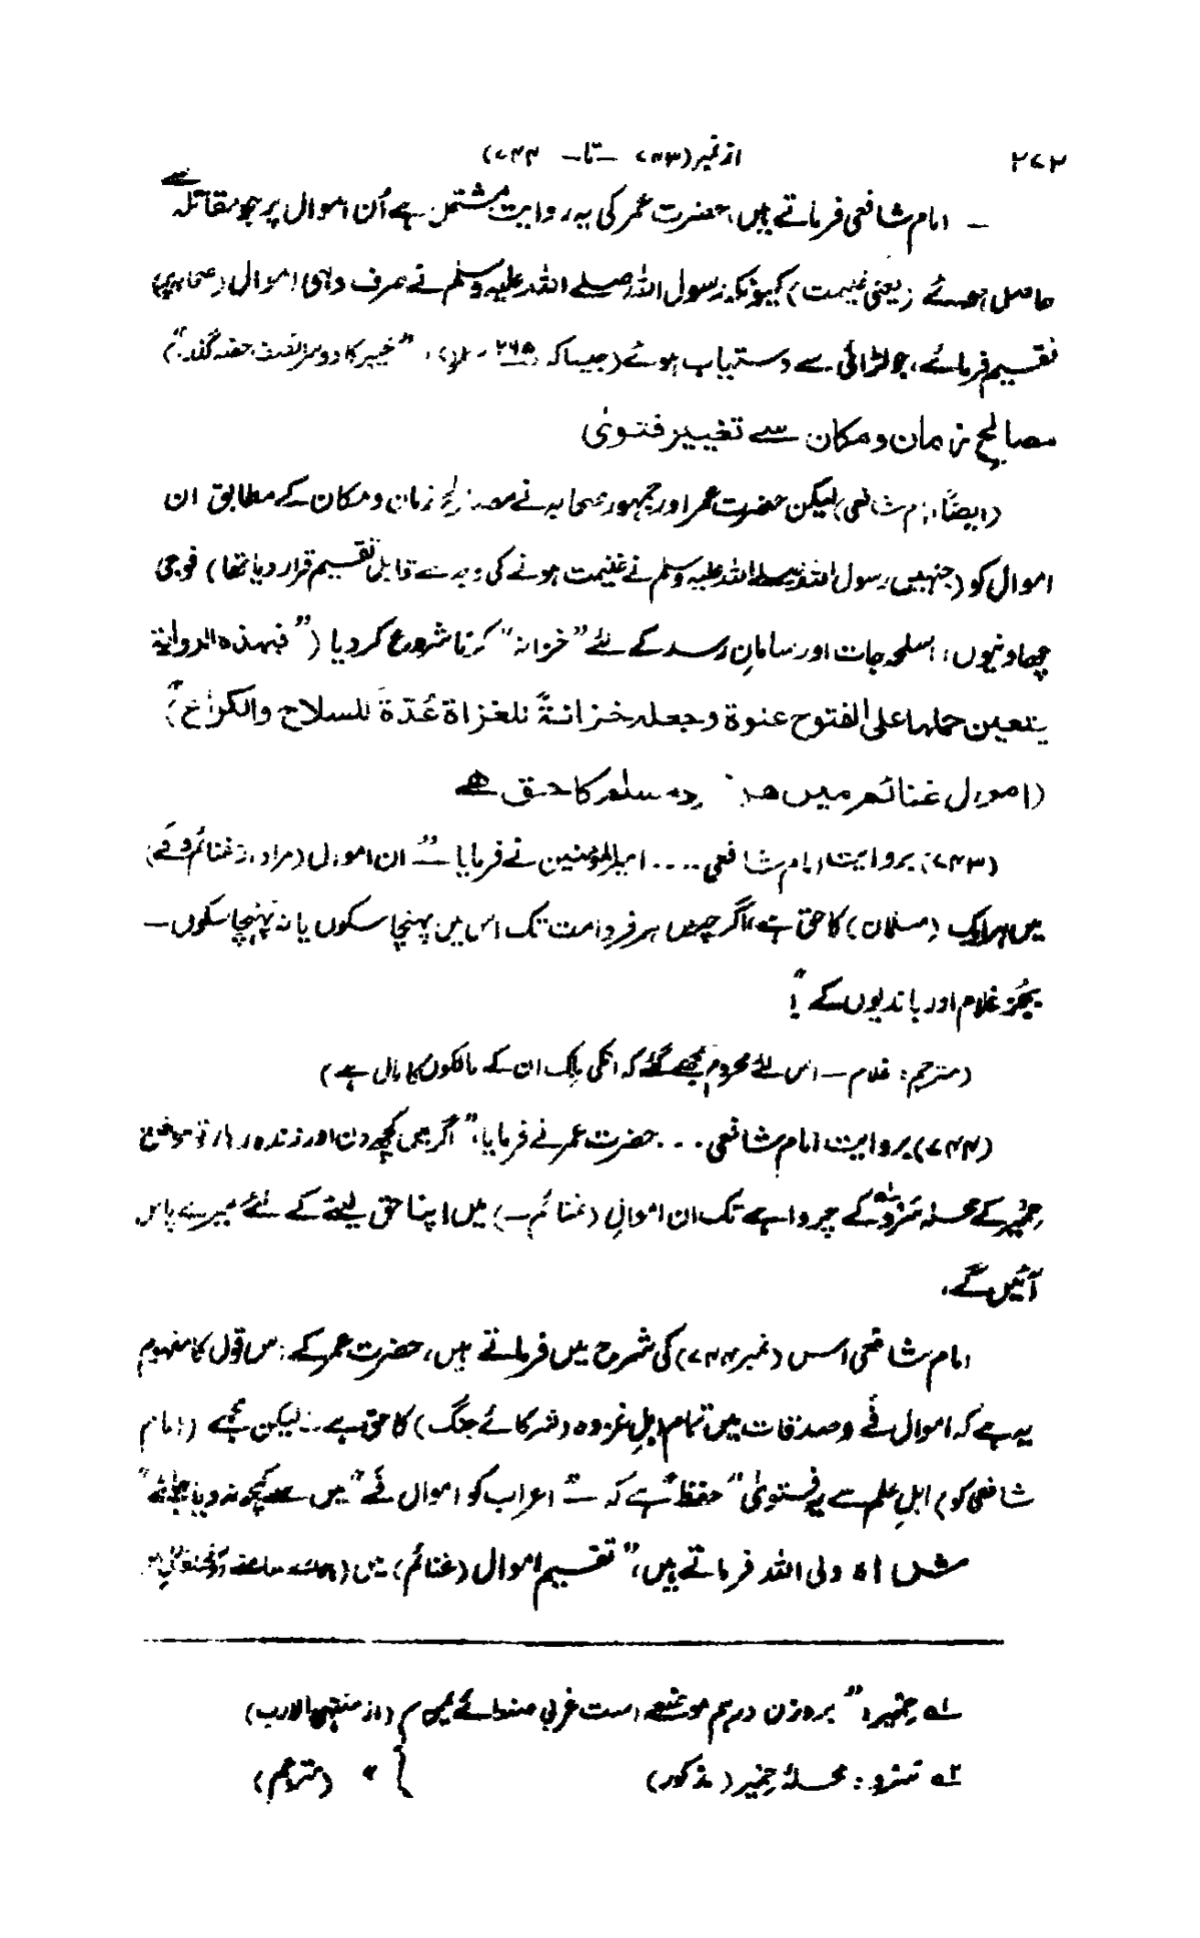 ۲۷۲ از نمبر (۷۴۳ – تا – ۷۴۴)
– امام شافعی فرماتے ہیں، حضرت عمر کی یہ روایت مشتمل ہے اُن اموال پر جو مقاتلہ سے
حاصل ہوئے (یعنی غنیمت) کیونکہ رسول اللہ صلے اللہ علیہ وسلم نے صرف وہی اموال
تقسیم فرمائے، جو لڑائی سے دستیاب ہوئے (جیسا کہ "خیبر کا دوسرا نصف حصہ
مصالح زمان و مکان سے تغییر فتویٰ
(ایضاً امام شافعی) لیکن حضرت عمر اور جمہور صحابہ نے مصالح زمان و مکان کے مطابق ان
اموال کو (جنہیں رسول اللہ صلے اللہ علیہ وسلم نے غنیمت ہونے کی وجہ سے قابل تقسیم قرار دیا تھا) فوجی
چھاونیوں، اسلحہ جات اور سامانِ رسد کے لئے "خزانہ" کرنا شروع کر دیا ("فہذہ الروایة
یتعین حملہا علی الفتوح عنوة وجعلہ خزانةً للغزاة عُدّةً للسلاح والکراع")
(اموال غنائم میں ہر مسلم کا حق ہے
(۷۴۳) بروایت امام شافعی .... امیر المؤمنین نے فرمایا – "ان اموال (مراد از غنائم و فے)
میں ہر ایک (مسلمان) کا حق ہے، اگرچہ میں ہر فرد امت تک اس میں پہنچا سکوں یا نہ پہنچا سکوں –
بجُز غلام اور باندیوں کے"!
(مترجم: غلام – اس لئے محروم سمجھے گئے کہ انکی مِلک ان کے مالکوں کا مال ہے)
(۷۴۴) بروایت امام شافعی ... حضرت عمر نے فرمایا، "اگر میں کچھ دن اور زندہ رہا، تو موضع
حِمْیر کے محلہ کے چرواہے تک ان اموالِ (غنائم –) میں اپنا حق لینے کے لئے میرے پاس
آئیں گے۔
امام شافعی اس (نمبر ۷۴۴) کی شرح میں فرماتے ہیں، حضرت عمر کے اس قول کا مفہوم
یہ ہے کہ اموال فے و صدقات میں تمام اہلِ غزوہ (شرکائے جنگ) کا حق ہے۔ لیکن مجھے (امام
شافعی کو) اہلِ علم سے یہ فتویٰ "حفظ" ہے کہ – "اعراب کو اموال فے" میں سے کچھ نہ دیا جائے"
شاہ ولی اللہ فرماتے ہیں، "تقسیم اموال (غنائم) میں
۱؎ حِمْیر: "بروزن درہم موضعے است غربی صنعائے یمن" (از منتہی الارب)
۲؎ : محلہ حِمْیر (مذکور) } " (مترجم)